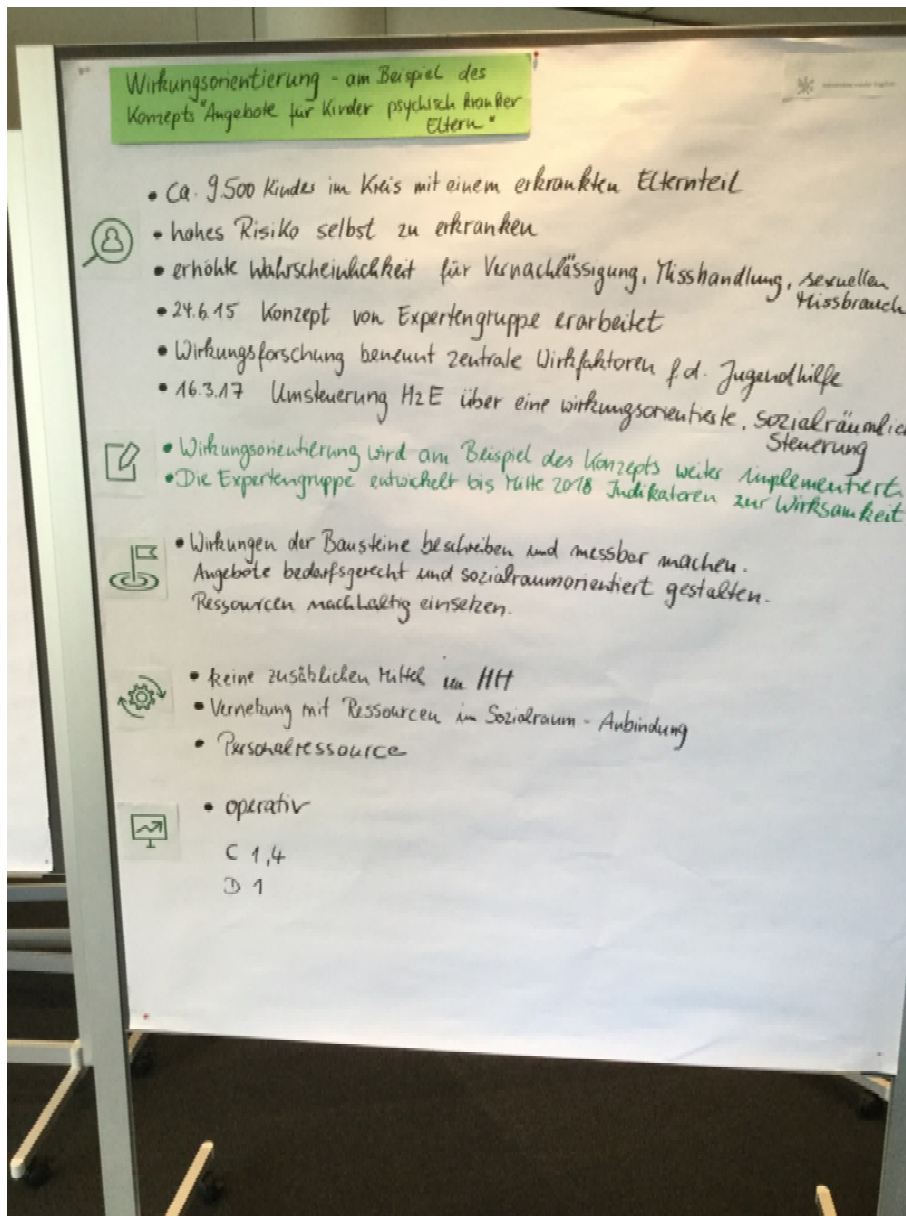 Wirkungsorientierung - am Beispiel des
Konzepts "Angebote für Kinder psychisch kranker
Eltern"
• Ca. 9.500 Kinder im Kreis mit einem erkrankten Elternteil
• hohes Risiko selbst zu erkranken
• erhöhte Wahrscheinlichkeit für Vernachlässigung, Misshandlung, sexuellen
Missbrauch
• 24.6.15 Konzept von Expertengruppe erarbeitet
• Wirkungsforschung benennt zentrale Wirkfaktoren f. d. Jugendhilfe
• 16.3.17 Umsteuerung HzE über eine wirkungsorientierte, sozialräumlic
Steuerung
• Wirkungsorientierung wird am Beispiel des Konzepts weiter implementiert.
• Die Expertengruppe entwickelt bis Mitte 2018 Indikatoren zur Wirksamkeit
• Wirkungen der Bausteine beschreiben und messbar machen.
Angebote bedarfsgerecht und sozialraumorientiert gestalten.
Ressourcen nachhaltig einsetzen.
• keine zusätzlichen Mittel im HH
• Vernetzung mit Ressourcen im Sozialraum - Anbindung
• Personalressource
• operativ
C 1,4
D 1